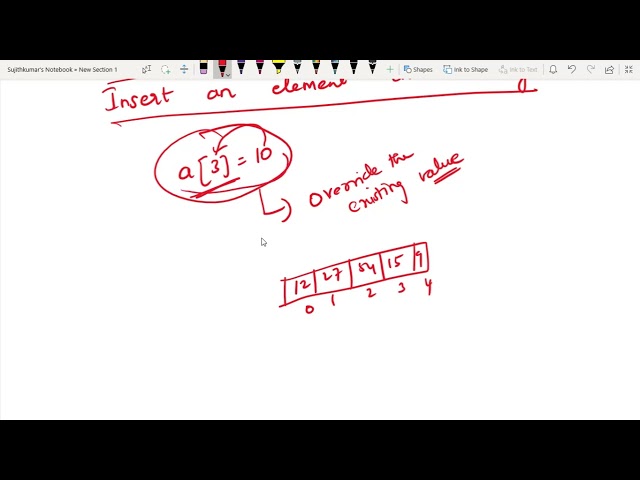 Sujithkumar's Notebook » New Section 1
Shapes
Ink to Shape
Ink to Text
Insert an element
a[3] = 10
Override the
existing value
12 27 54 15 9
0 1 2 3 4